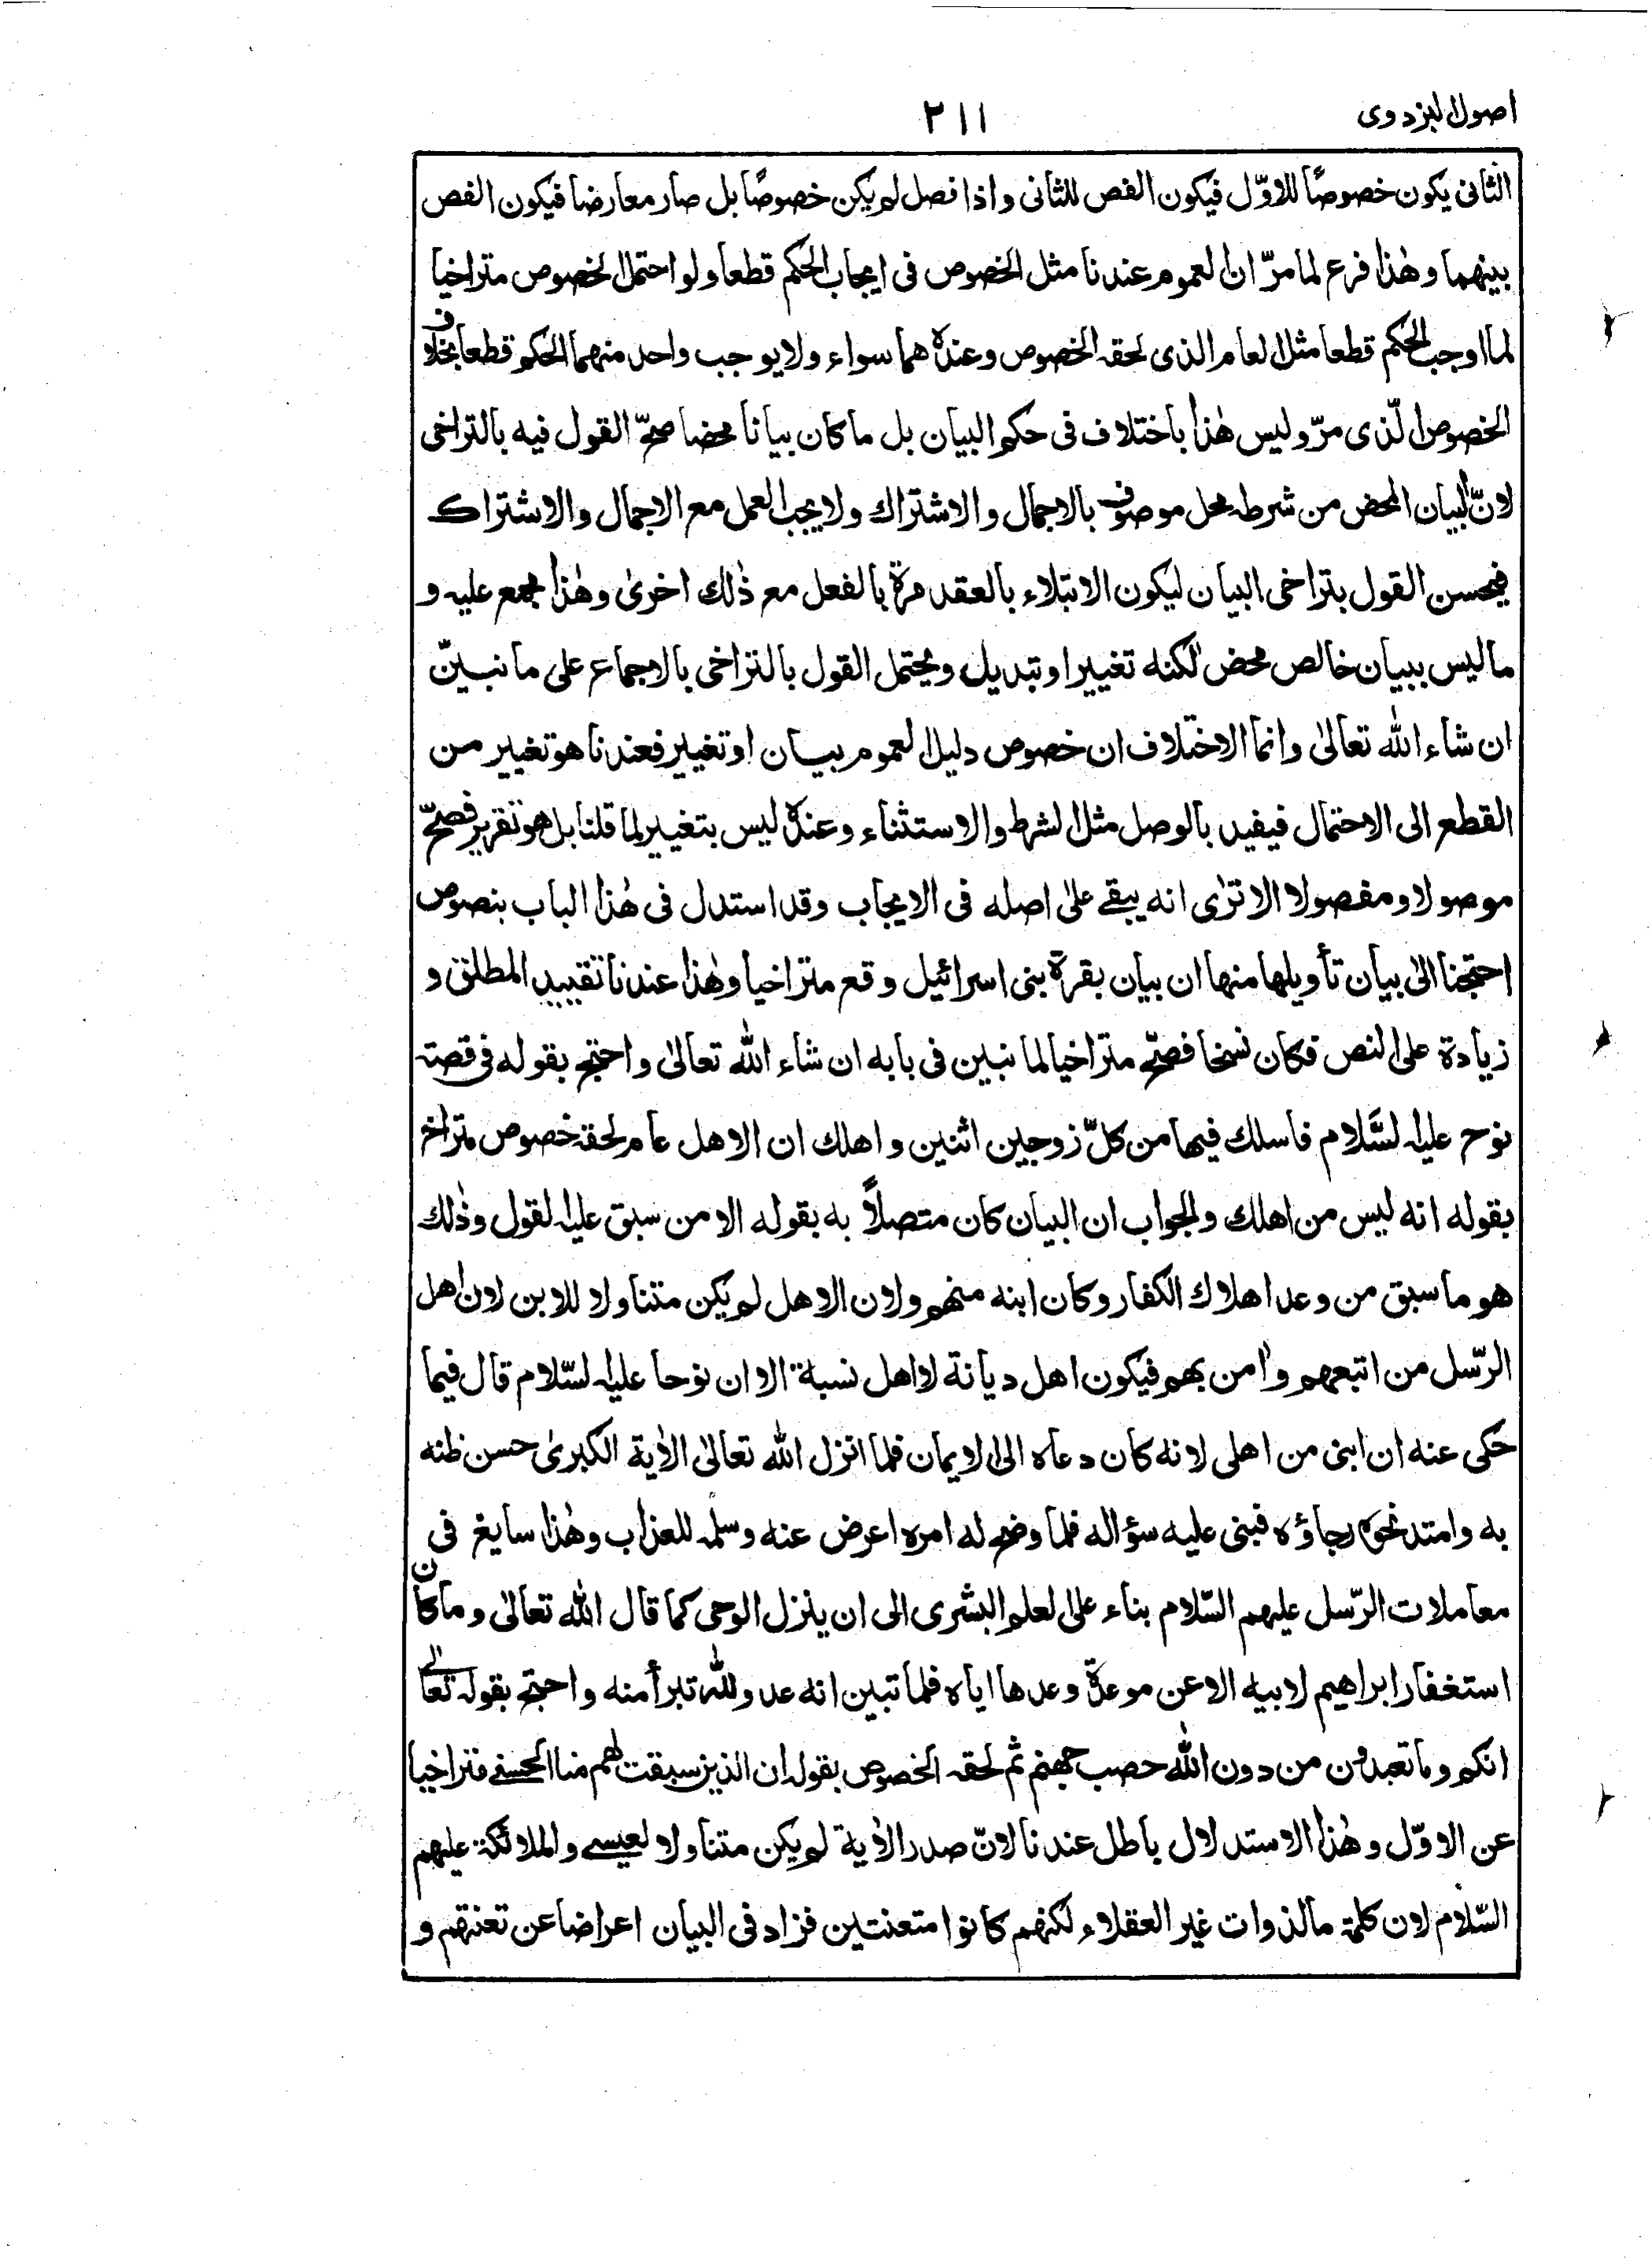 اصول البزدوی
٢١١
الثانی یکون خصوصًا للاوّل فیکون الفص للثانی واذا فصل لم یکن خصوصًا بل صار معارضا فیکون الفص
بینهما وهٰذا فرع لما مرّ ان العموم عندنا مثل الخصوص فی ایجاب الحکم قطعا ولو احتمل الخصوص متراخیا
لما اوجب الحکم قطعا مثل العام الذی لحقه الخصوص وعنده هما سواء ولا یوجب واحد منهما الحکم قطعا بخلاف
الخصوص الّذی مرّ ولیس هٰذا باختلاف فی حکم البیان بل ما کان بیانا محضا صحّ القول فیه بالتراخی
لانّ البیان المحض من شرطه محل موصوف بالاجمال والاشتراك ولا یجب العمل مع الاجمال والاشتراك
فیحسن القول بتراخی البیان لیکون الابتلاء بالعقد مرة بالفعل مع ذٰلك اخریٰ وهٰذا مجمع علیه و
ما لیس ببیان خالص محض لٰکنه تغییر او تبدیل ویحتمل القول بالتراخی بالاجماع علی ما نبیّن
ان شاء الله تعالیٰ وانما الاختلاف ان خصوص دلیل العموم بیان او تغییر فعندنا هو تغییر من
القطع الی الاحتمال فیفید بالوصل مثل الشرط والاستثناء وعنده لیس بتغییر لما قلنا بل هو تقریر فصحّ
موصولا ومفصولا الا ترٰی انه یبقے علیٰ اصله فی الایجاب وقد استدل فی هٰذا الباب بنصوص
احتجنا الیٰ بیان تأویلها منها ان بیان بقرة بنی اسرائیل وقع متراخیا وهٰذا عندنا تقیید المطلق و
زیادة علی النص فکان نسخا فصحّ متراخیا لما نبین فی بابه ان شاء الله تعالیٰ واحتج بقوله فی قصة
نوح علیه السَّلام فاسلك فیها من کلّ زوجین اثنین واهلك ان الاهل عام لحقه خصوص متراخ
بقوله انه لیس من اهلك والجواب ان البیان کان متصلاً به بقوله الا من سبق علیه القول وذٰلك
هو ما سبق من وعد اهلاك الکفار وکان ابنه منهم ولان الاهل لم یکن متناولا للابن لان اهل
الرّسل من اتبعهم واٰمن بهم فیکون اهل دیانة لا اهل نسبة الا ان نوحا علیه السّلام قال فیما
حکی عنه ان ابنی من اهلی لانه کان دعاه الی الایمان فلما انزل الله تعالیٰ الاٰیة الکبریٰ حسن ظنه
به وامتد نحوه رجاؤه فبنی علیه سؤاله فلما وضح له امره اعرض عنه وسلمه للعذاب وهٰذا سایغ فی
معاملات الرّسل علیهم السّلام بناء علی العلم البشری الی ان ینزل الوحی کما قال الله تعالیٰ وما کان
استغفار ابراهیم لابیه الا عن موعدة وعدها ایاه فلما تبین انه عدو لله تبرأ منه واحتج بقوله تعالی
انکم وما تعبدون من دون الله حصب جهنم ثم لحقه الخصوص بقوله ان الذین سبقت لهم منا الحسنے متراخیا
عن الاوّل وهٰذا الاستدلال باطل عندنا لانّ صدر الاٰیة لم یکن متناولا لعیسے والملائکة علیهم
السّلام لان کلمة ما لذوات غیر العقلاء لکنهم کانوا متعنتین فزاد فی البیان اعراضا عن تعنتهم و